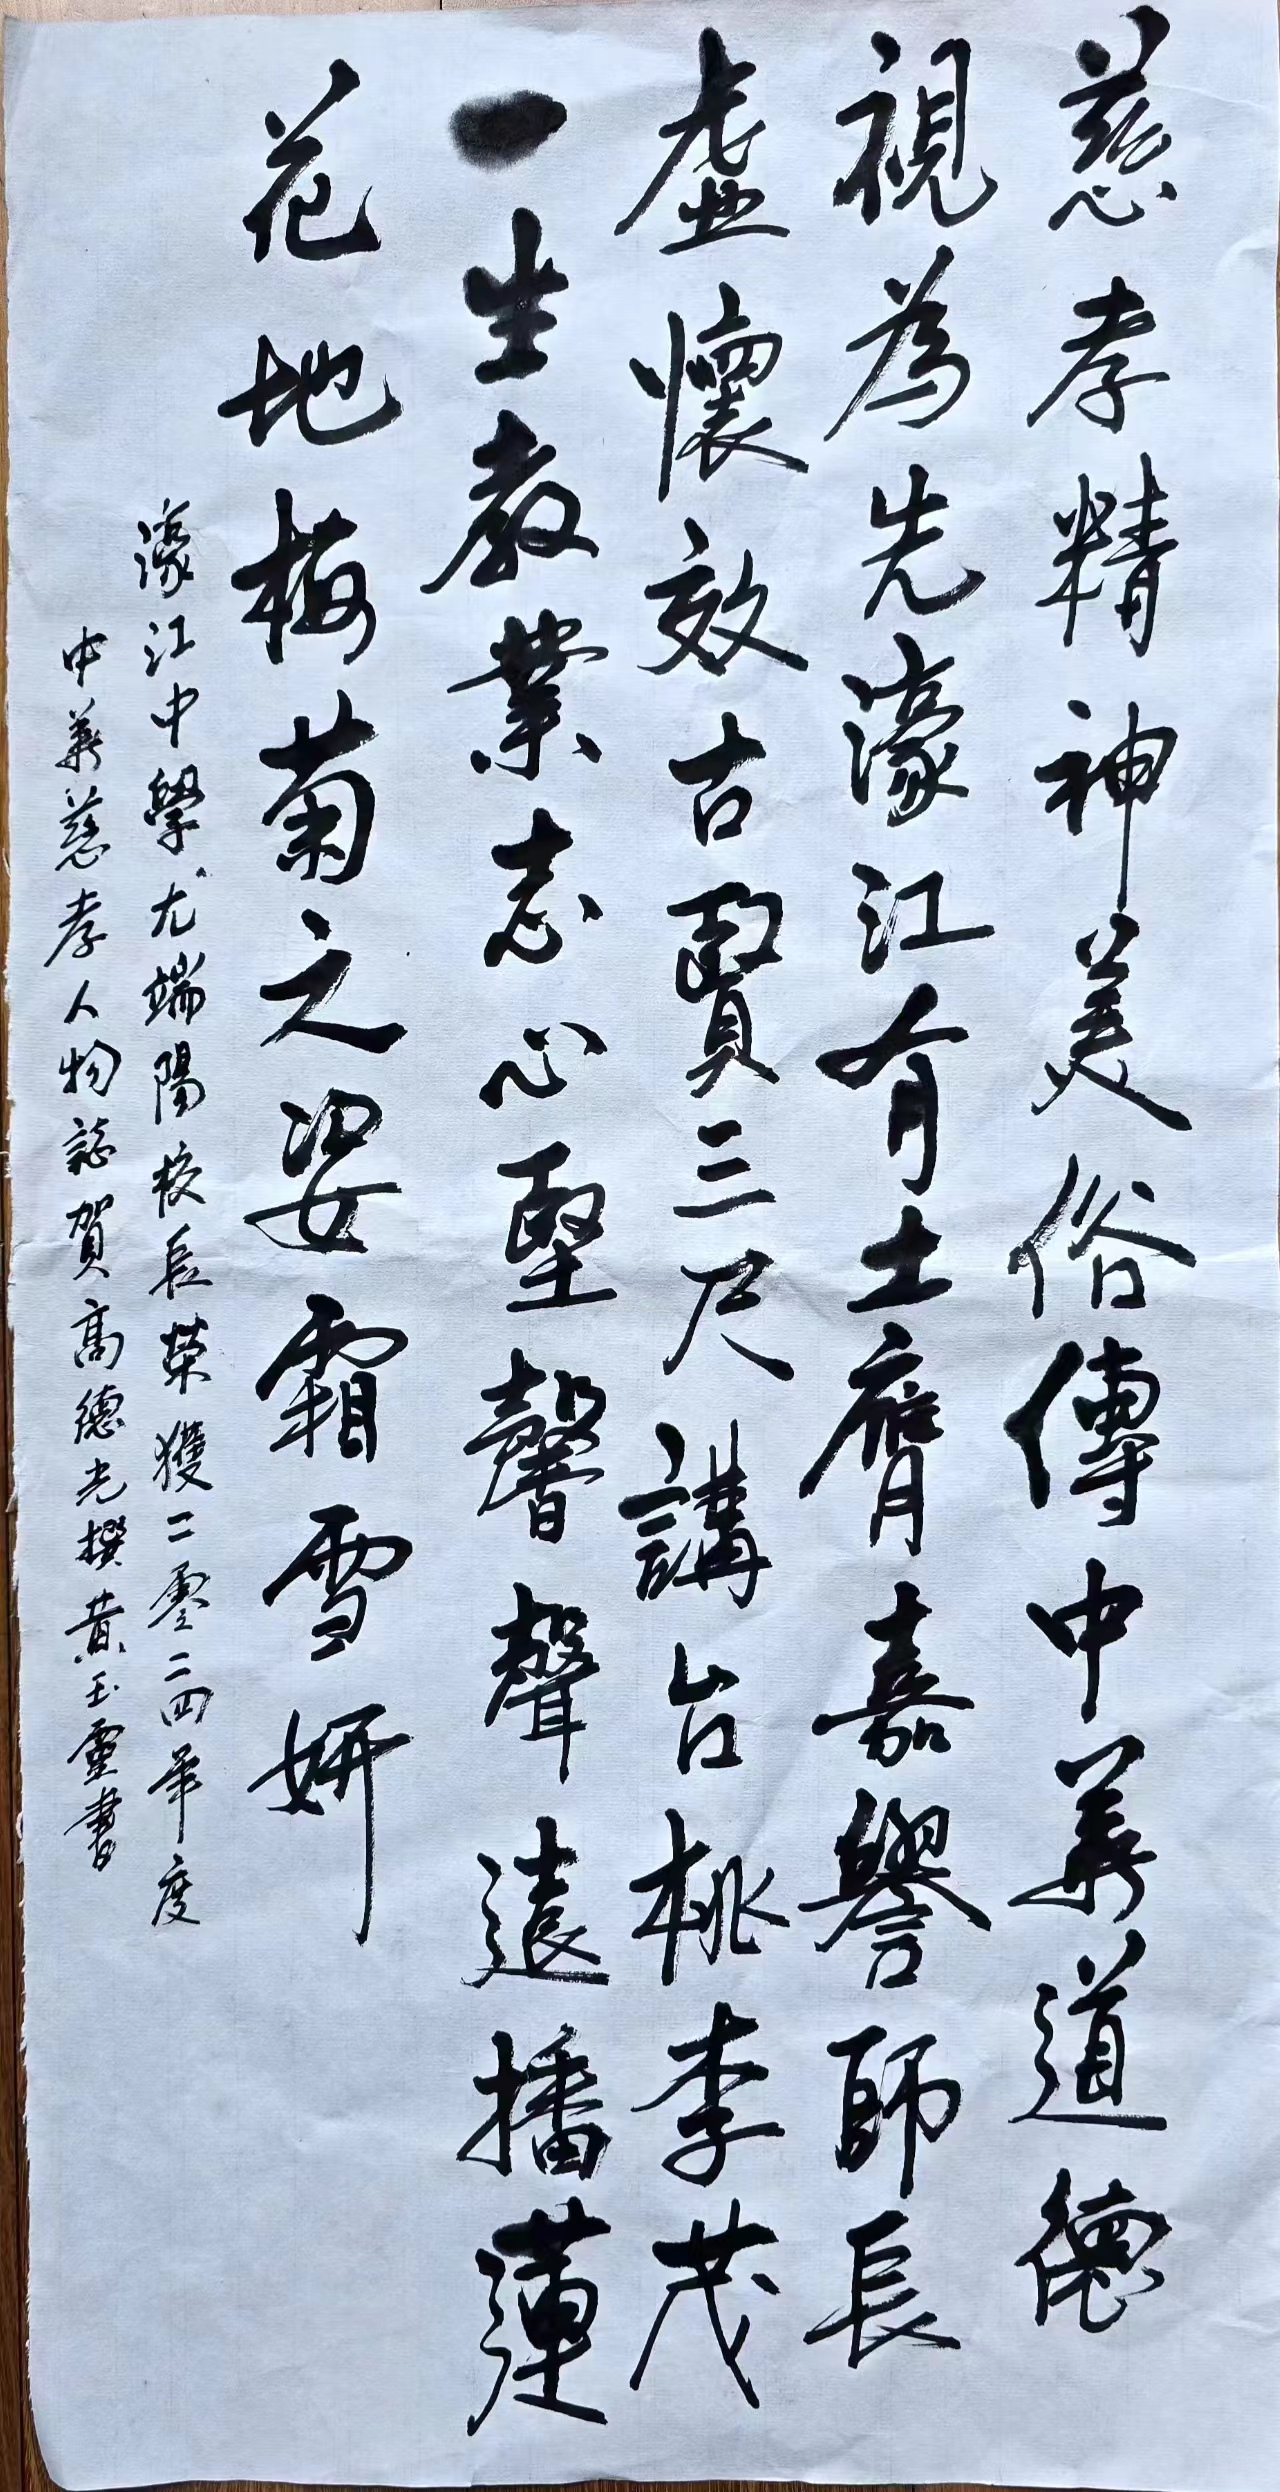 慈孝精神美俗傳中華道德
視為先濠江有士膺嘉譽師長
虛懷效古賢三尺講台桃李茂
一生教業志心堅馨聲遠播蓮
花地梅菊之姿霜雪妍
濠江中學尤端陽校長榮獲二零二四年度
中華慈孝人物誌賀高德光撰黄玉靈書